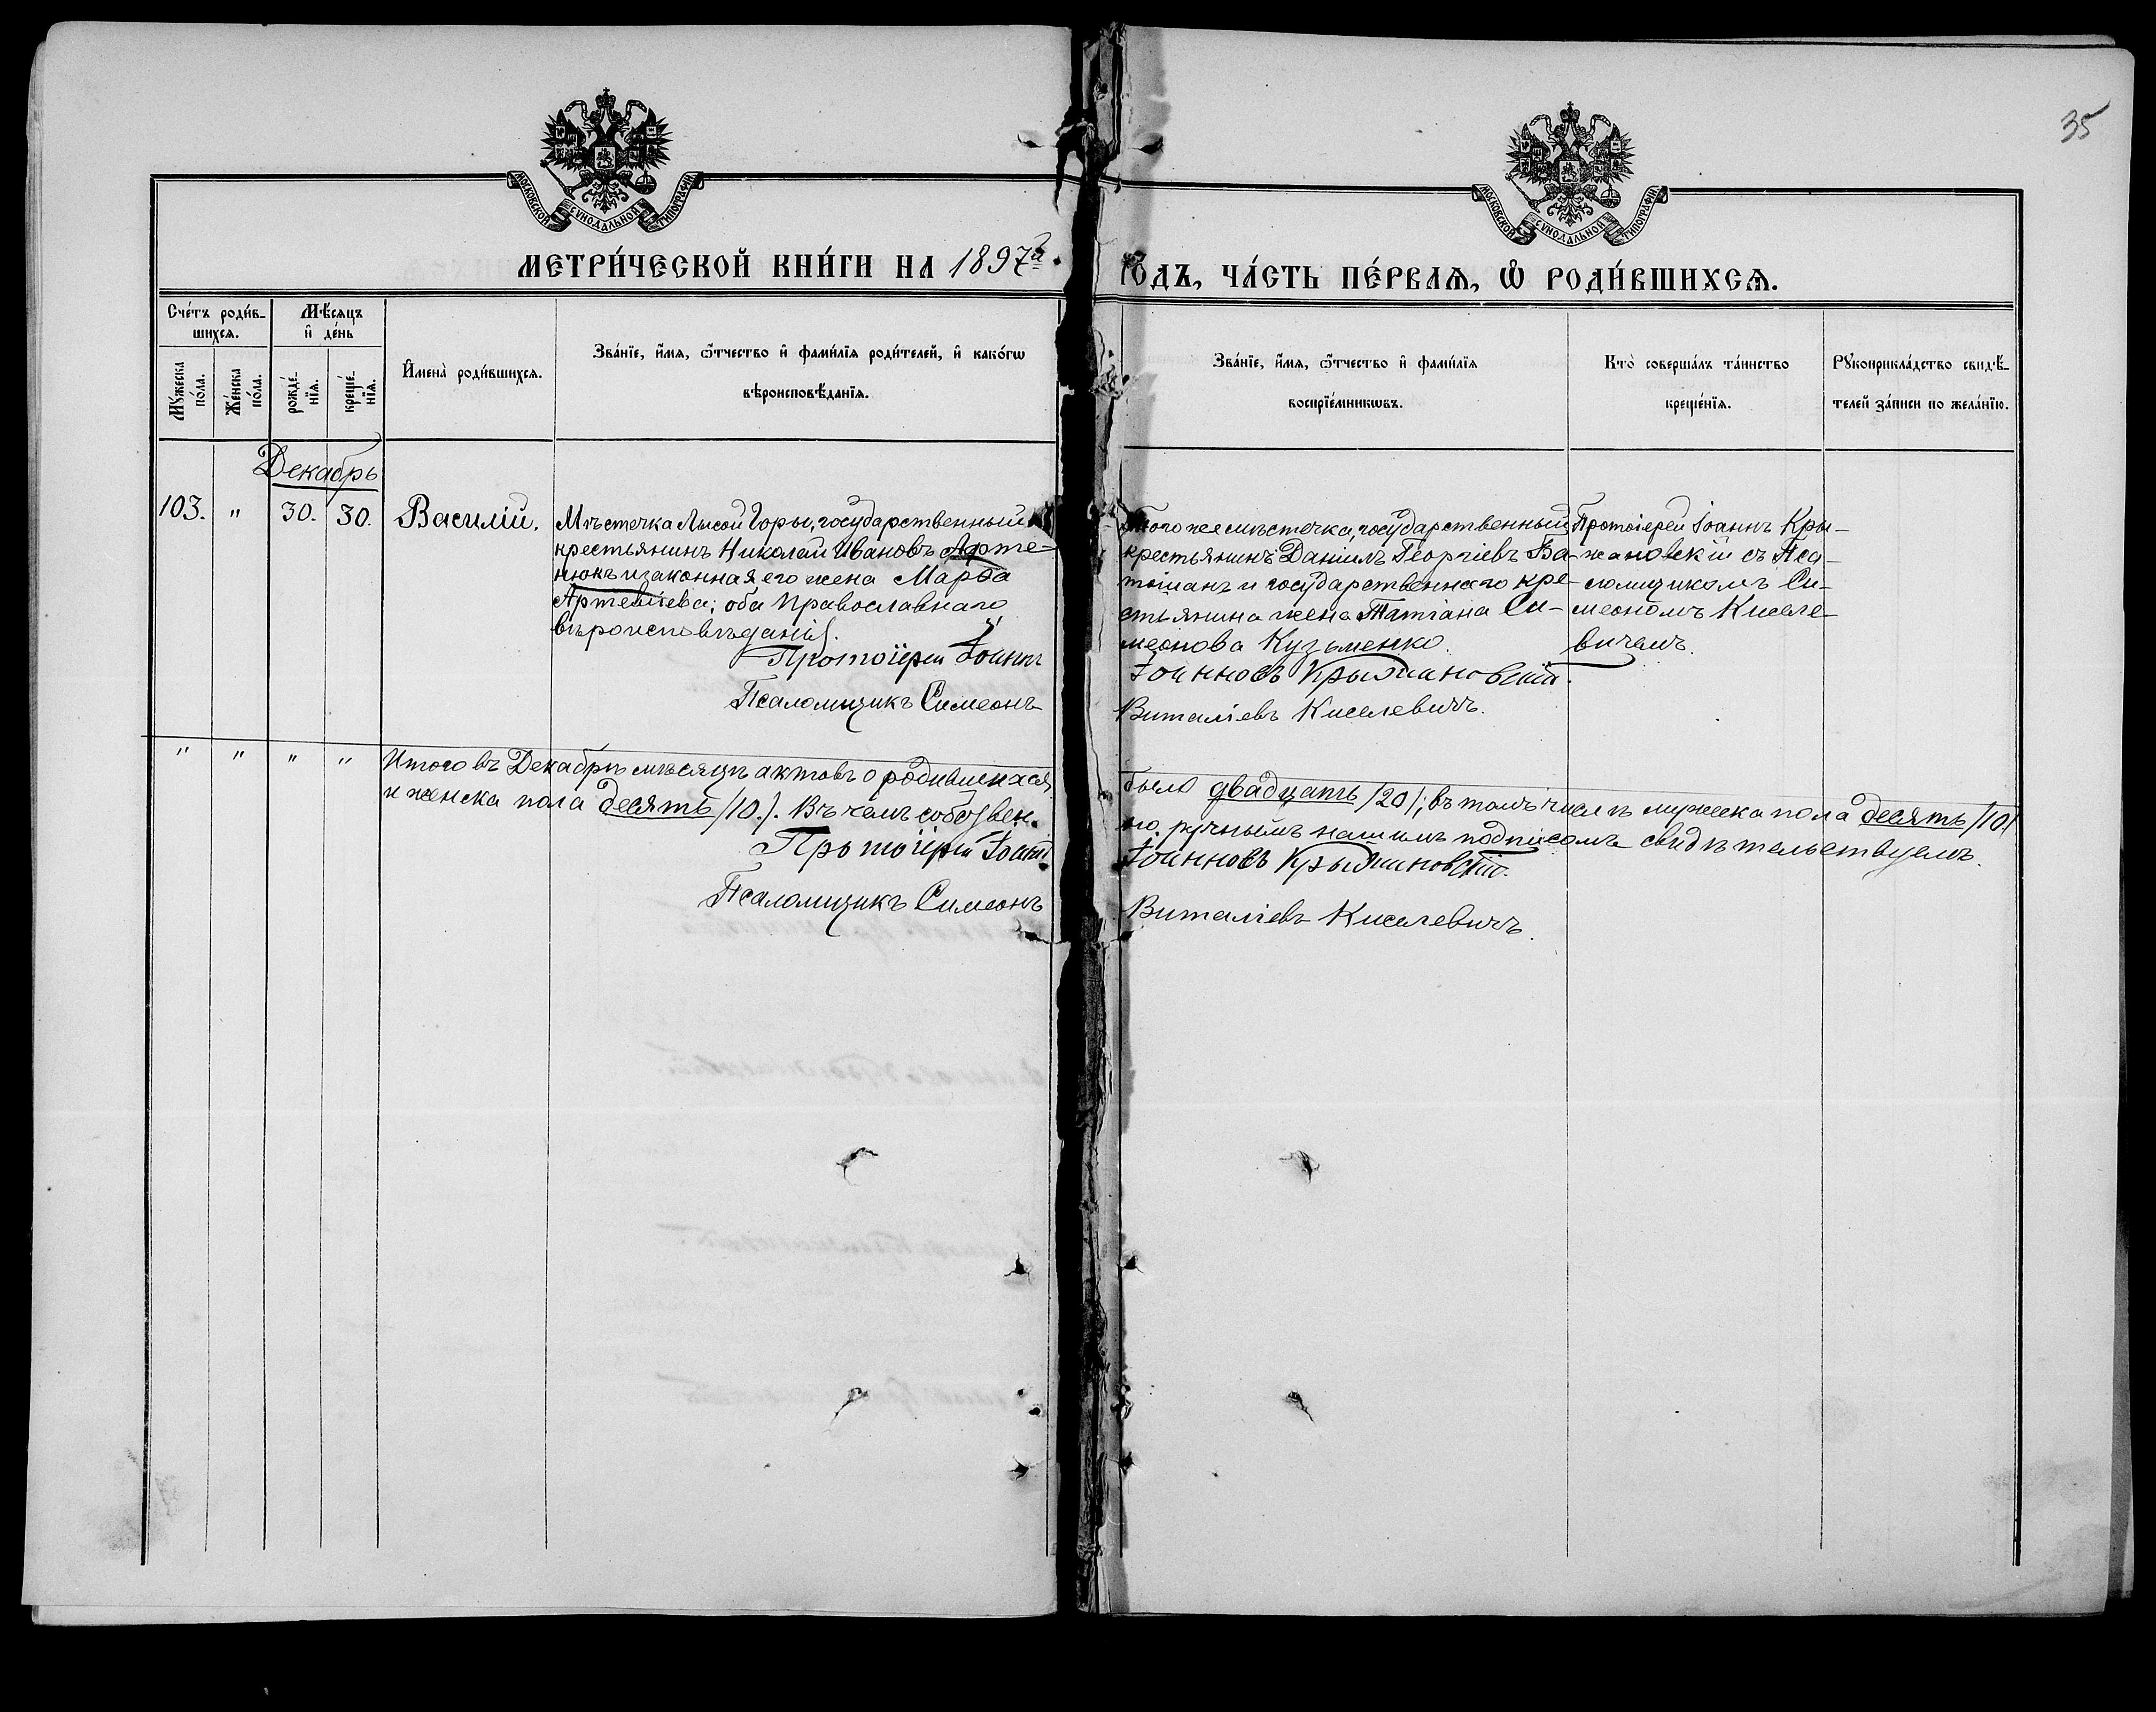 35
МОСКОВСКОЙ СУНОДАЛЬНОЙ ТИПОГРАФИИ
МОСКОВСКОЙ СУНОДАЛЬНОЙ ТИПОГРАФИИ
МЕТРИ́ЧЕСКОЙ КНИ́ГИ НА 1897й
ГОДЪ, ЧА́СТЬ ПЕ́РВАѦ, Ѽ РОДИ́ВШИХСѦ.
Сче́тъ роди́в-
шихсѧ.
Мѣ́сѧцъ
и҆ де́нь
Мꙋ́жеска
по́ла.
Же́нска
по́ла.
рожде́-
нїѧ.
креще́-
нїѧ.
И҆мена̀ роди́вшихсѧ.
Зва́нїе, и҆́мѧ, ѻ҆́тчество и҆ фами́лїѧ роди́телей, и҆ како́гѡ
вѣроисповѣ́данїѧ.
Зва́нїе, и҆́мѧ, ѻ҆́тчество и҆ фами́лїѧ
воспрїе́мникѡвъ.
Кто̀ соверша́лъ та́инство
креще́нїѧ.
Рꙋкоприкла́дство свидѣ́-
телей за́писи по жела́нїю.
Декабрь
103. " 30. 30. Василій.
Мѣстечка Лысой Горы, государственный
крестьянинъ Николай Ивановъ Арте-
нюкъ и законная его жена Марѳа
Артеміева; оба православнаго
вѣроисповѣданія.
Протоіерей Іоаннъ
Псаломщикъ Симеонъ
Того же мѣстечка, государственный
крестьянинъ Даніилъ Георгіевъ Ва-
томанъ и государственнаго кре-
стьянина жена Татіана Си-
меонова Кузьменко.
Іоанновъ Крыжановскій.
Виталіевъ Киселевичъ.
Протоіерей Іоаннъ Кры-
жановскій съ Пса-
ломщикомъ Си-
меономъ Киселе-
вичемъ.
" " " "
Итого въ Декабрѣ мѣсяцѣ актовъ о родившихся
и женска пола десять /10./. Въ чемъ собствен-
Протоіерей Іоаннъ
Псаломщикъ Симеонъ
было двадцать /20/; въ томъ числѣ мужеска пола десять /10/
но-ручнымъ нашимъ подписомъ свидѣтельствуемъ.
Іоанновъ Крыжановскій.
Виталіевъ Киселевичъ.